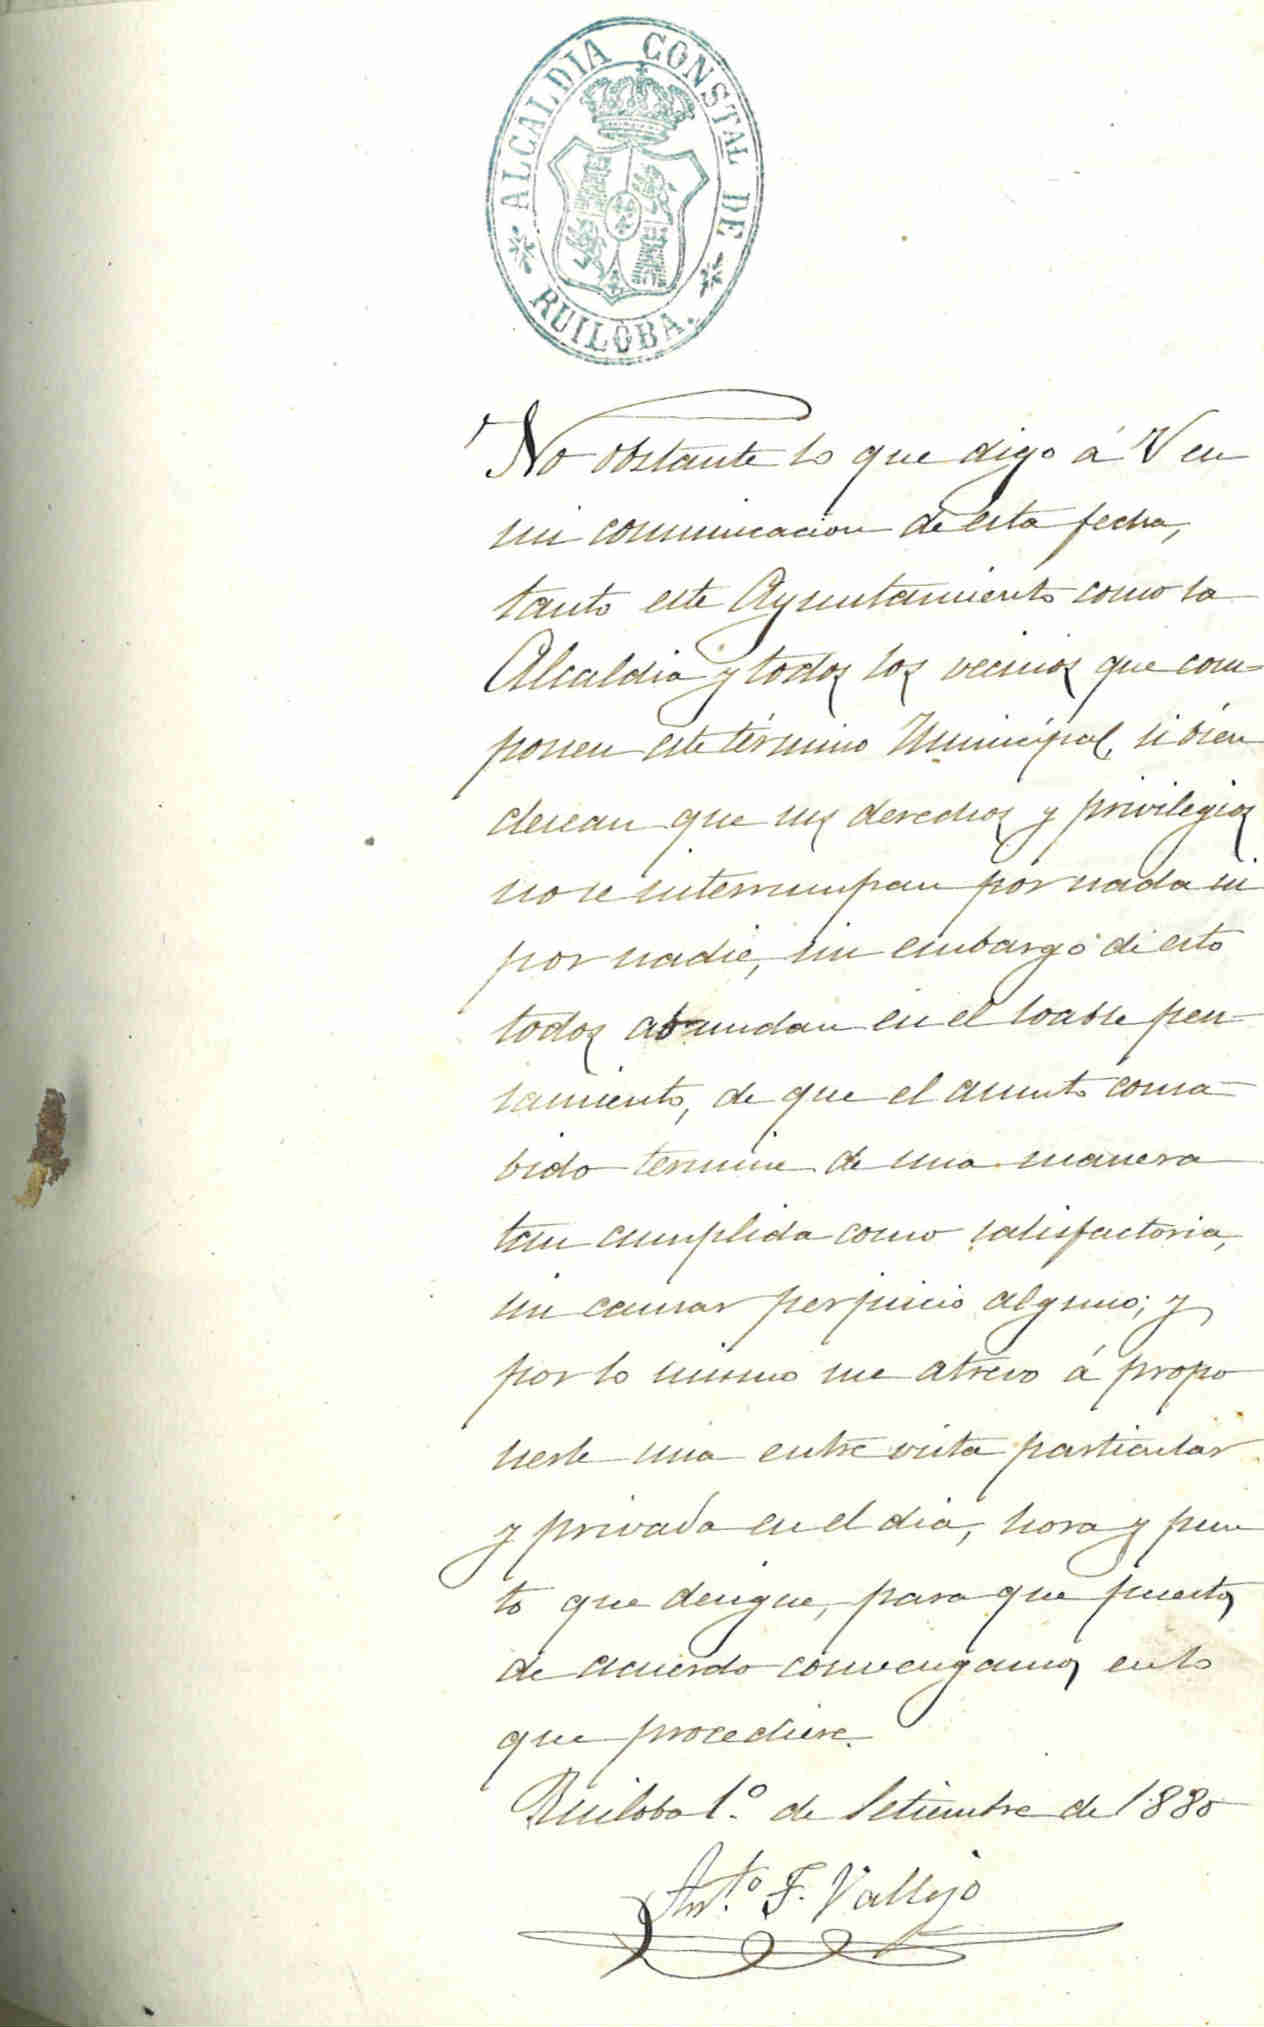 ALCALDIA CONSTAL DE
RUILOBA.
No obstante lo que digo á V en
mi comunicacion de esta fecha,
tanto este Ayuntamiento como la
Alcaldia y todos los vecinos que com=
ponen este término Municipal, si bien
desean que sus derechos y privilegios
no se interrumpan por nada ni
por nadie, sin embargo de esto
todos abundan en el loable pen-
samiento, de que el asunto consa-
bido termine de una manera
tan cumplida como satisfactoria,
sin causar perjuicio alguno; y
por lo mismo me atrevo á propo
nerle una entre vista particular
y privada en el dia, hora y pun
to que designe, para que puestos
de acuerdo convengamos en lo
que procediere.
Ruiloba 1.º de Setiembre de 1880
Ant.to F. Vallejo